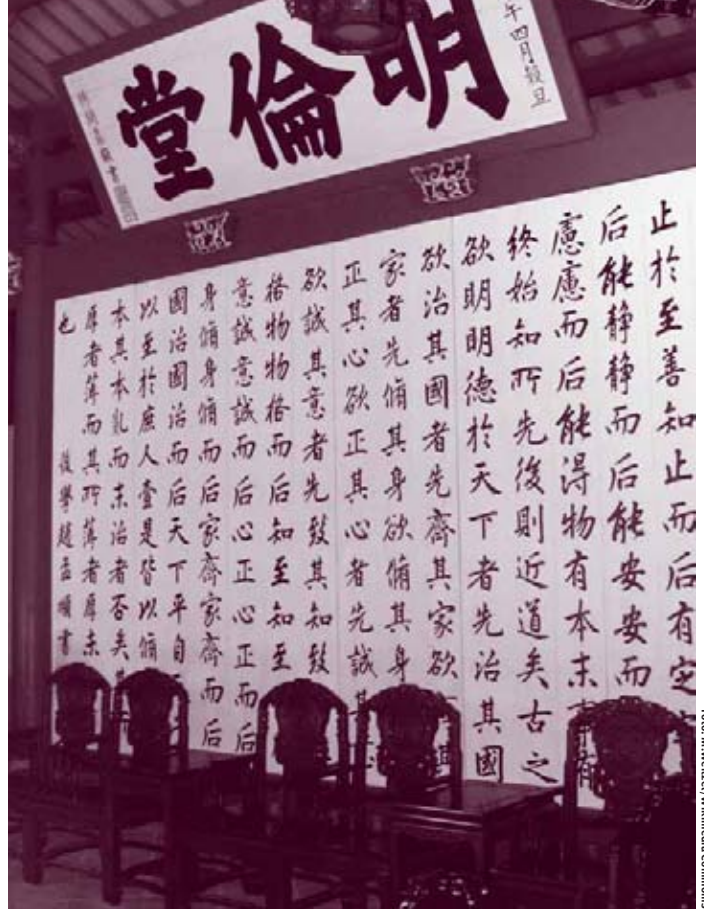 午四月穀旦
明倫堂
止於至善知止而后有定
后能静静而后能安安而
慮慮而后能得物有本末事有
終始知所先後則近道矣古之
欲明明德於天下者先治其國
欲治其國者先齊其家欲
家者先脩其身欲脩其身
正其心欲正其心者先誠其
欲誠其意者先致其知致
格物物格而后知至知至
意誠意誠而后心正心正而后
身脩身脩而后家齊家齊而后
國治國治而后天下平自
以至於庶人壹是皆以脩
本其本乱而末治者否矣其
厚者薄而其所薄者厚未
也 後學趙孟頫書